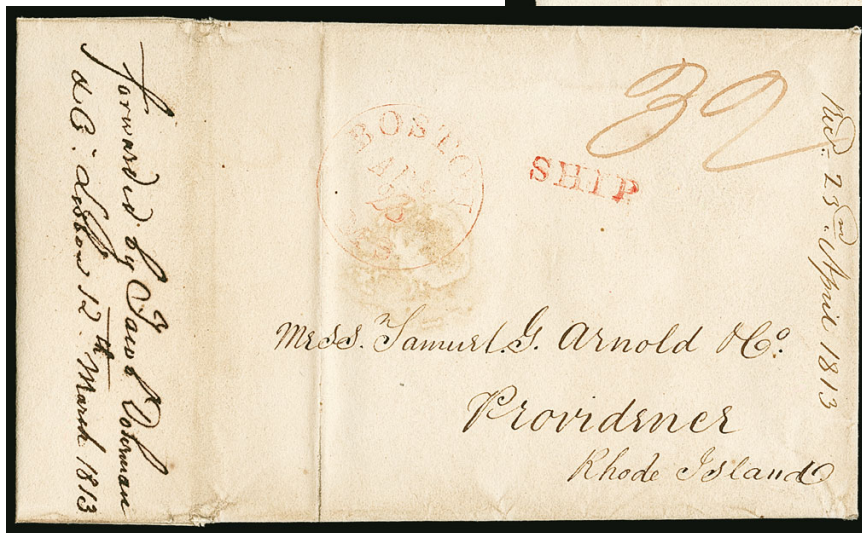 forwarded by Jacob Dohrman
& Co. Lisbon 12th March 1813
BOSTON
MS
32
SHIP
Recd. 23rd April 1813
Mess. Samuel. G. Arnold & Co.
Providence
Rhode Island